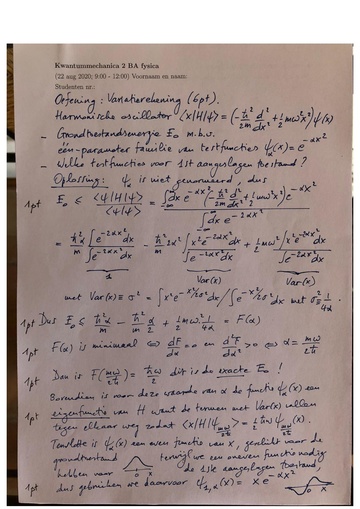 Kwantummechanica 2 BA fysica
(22 aug 2020; 9:00 - 12:00) Voornaam en naam:
Studenten nr.:
Oefening: Variatierekening (6pt).
Harmonische oscillator <x|H|ψ> = (-ħ²/2m d²/dx² + ½mω²x²)ψ(x)
- Grondtoestandsenergie E₀ m.b.v.
één-parameter familie van testfuncties ψ_α(x) = e^{-αx²}
- Welke testfuncties voor 1st aangeslagen toestand?
Oplossing: ψ_α is niet genormeerd, dus
1pt E₀ ≤ <ψ|H|ψ>/<ψ|ψ> = ∫_{-∞}^{∞} dx e^{-αx²} (-ħ²/2m d²/dx² + ½mω²x²) e^{-αx²} / ∫_{-∞}^{∞} dx e^{-2αx²}
= ħ²α/m ∫e^{-2αx²}dx / ∫e^{-2αx²}dx - ħ²/m 2α² ∫x²e^{-2αx²}dx / ∫e^{-2αx²}dx + ½mω² ∫x²e^{-2αx²}dx / ∫e^{-2αx²}dx
1 Var(x) Var(x)
met Var(x) = σ² = ∫x² e^{-x²/2σ²}dx / ∫e^{-x²/2σ²}dx met σ² = 1/4α.
1pt Dus E₀ ≤ ħ²α/m - ħ²α/m 2 + ½mω² 1/4α = F(α)
1pt F(α) is minimaal ⇔ dF/dα = 0 en d²F/dα² > 0 ⇔ α = mω/2ħ
1pt Dan is F(mω/2ħ) = ħω/2 dit is de exacte E₀!
Bovendien is voor deze waarde van α de functie ψ_α(x) een
1pt eigenfunctie van H want de termen met Var(x) vallen
tegen elkaar weg zodat <x|H|ψ_{mω/2ħ}> = ½ħω ψ_{mω/2ħ}(x).
Tenslotte is ψ_α(x) een even functie van x, geschikt voor de
grondtoestand terwijl we een oneven functie nodig
hebben voor de 1ste aangeslagen toestand,
1pt dus gebruiken we daarvoor ψ_{1,α}(x) = x e^{-αx²}